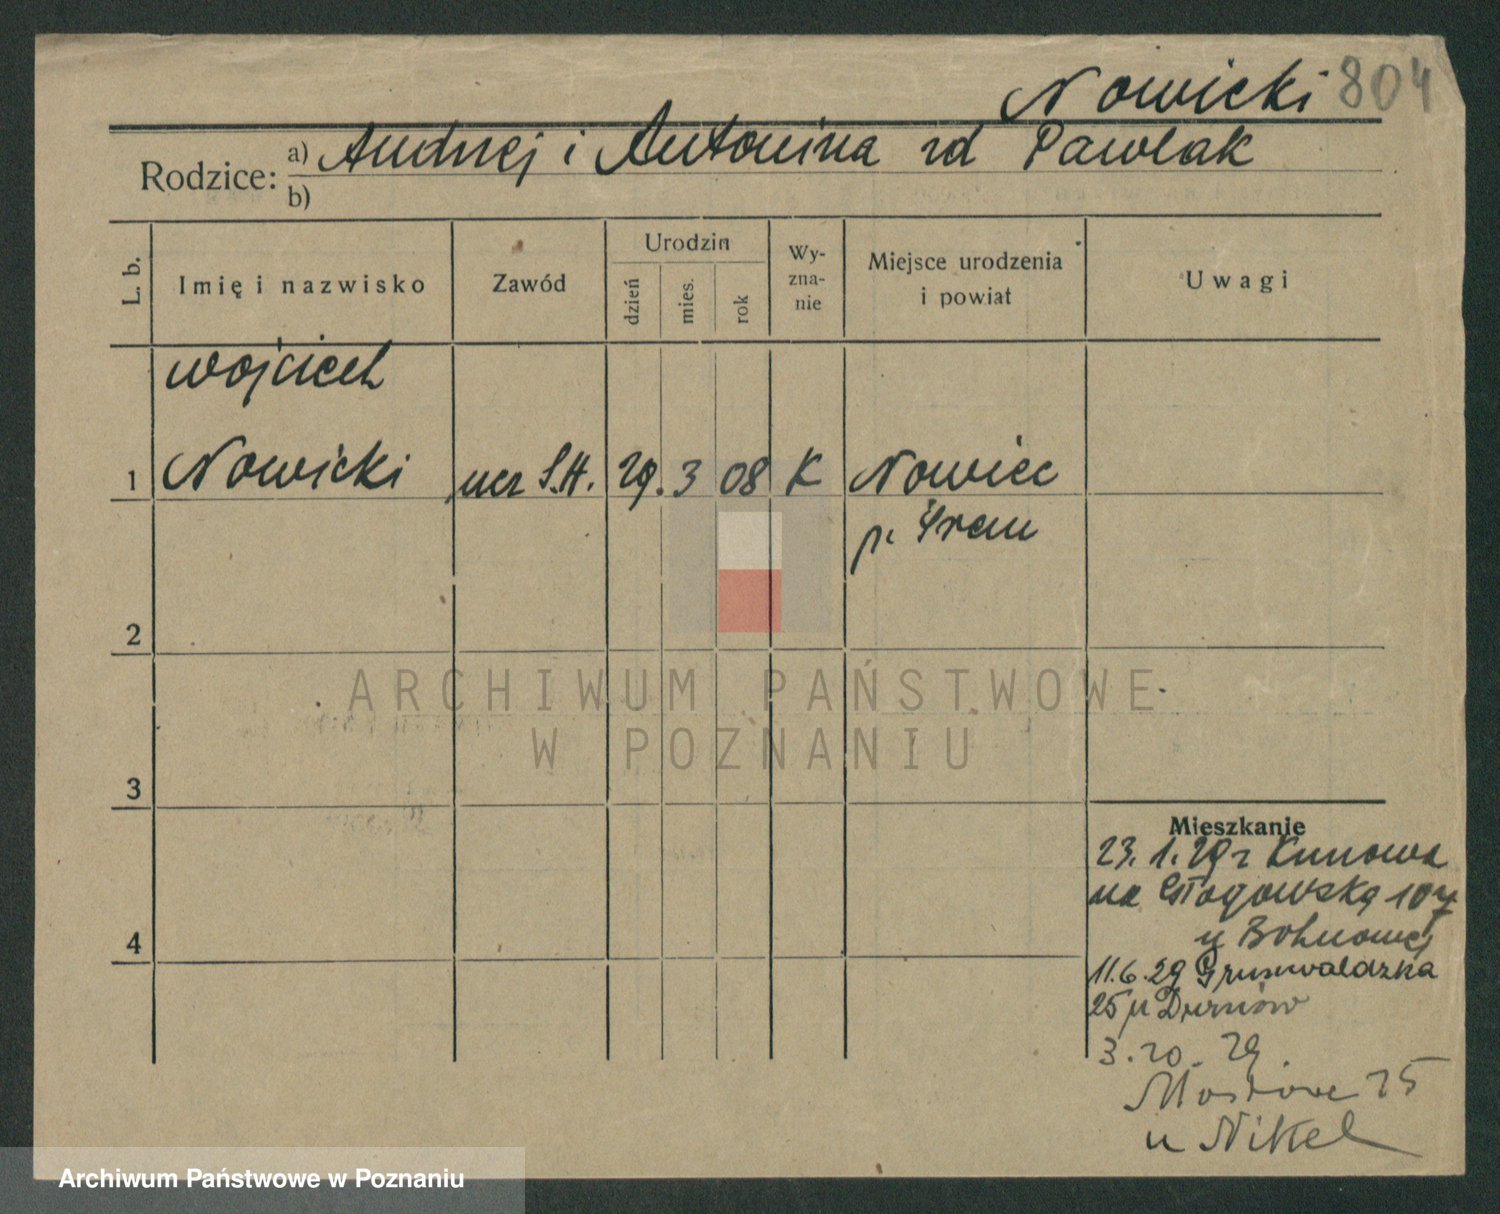 Nowicki 804
Rodzice: a) Andrzej i Antonina rd Pawlak
b)
L. b.
Imię i nazwisko
Zawód
Urodzin
dzień
mies.
rok
Wy-
zna-
nie
Miejsce urodzenia
i powiat
Uwagi
Wojciech
1 Nowicki ucz S.H. 29. 3 08 K Nowiec
p. Śrem
2
3
4
ARCHIWUM PAŃSTWOWE
W POZNANIU
Mieszkanie
23. 1. 29 z Kunowa
na Głogowską 107
u Bohnowej
11.6.29 Grunwaldzka
25 u Durniów
3. 10. 29.
Mostowa 25
u Nikel
Archiwum Państwowe w Poznaniu